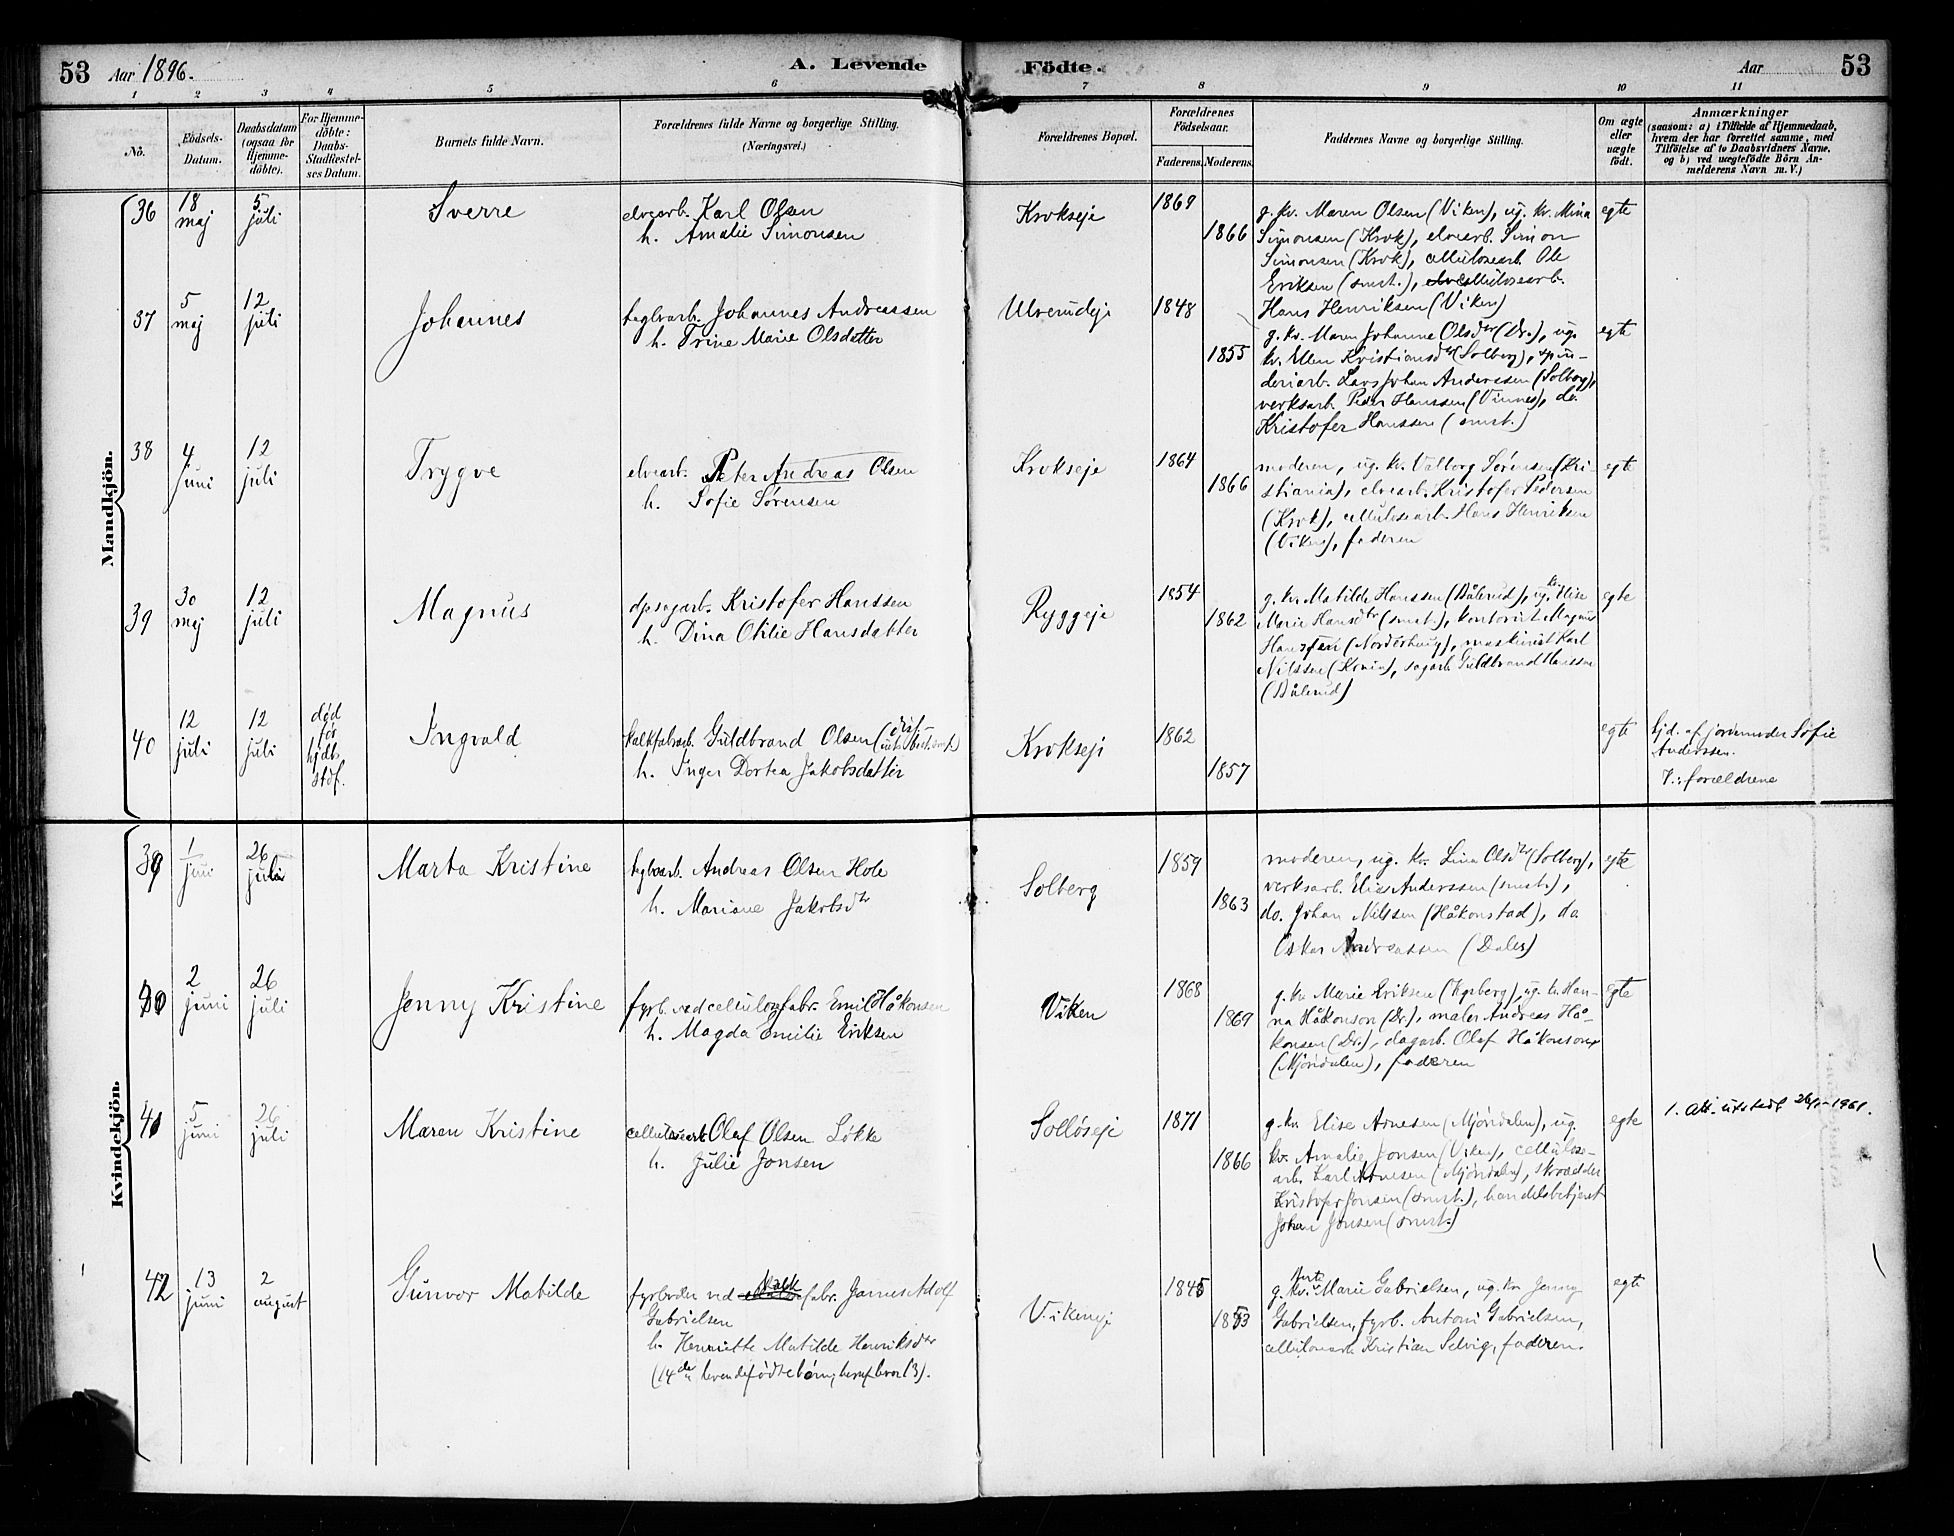 53 Aar 1896. A. Levende Födte. Aar 53
1 2 3 4 5 6 7 8 9 10 11
No.
Födsels-
Datum.
Daabsdatum
(ogsaa for
Hjemme-
döbte).
For Hjemme-
döbte:
Daabs-
Stadfæstel-
ses Datum.
Barnets fulde Navn.
Forældrenes fulde Navne og borgerlige Stilling.
(Næringsvei.)
Forældrenes Bopæl.
Forældrenes
Födselsaar.
Faderens. Moderens.
Faddernes Navne og borgerlige Stilling.
Om ægte
eller
uægte
födt.
Anmærkninger
(saasom: a) i Tilfælde af Hjemmedaab,
hvem der har forrettet samme, med
Tilföielse af to Daabsvidners Navne,
og b) ved uægtefödte Börn An-
melderens Navn m. V.)
Mandkjön.
36
18
maj
5
juli
Sverre
elvearb. Karl Olsen
h. Amalie Simonsen
Krokseje
1869
1866
g. kv. Maren Olsen (Viken), ug. kv. Mina
Simonsen (Krok), elvearb. Simon
Simonsen (Krok), cellulosearb. Ole
Eriksen (smst.), cellulosearb.
Hans Henriksen (Viken)
egte
37
5
maj
12
juli
Johannes
teglvarb. Johannes Andreassen
h. Trine Marie Olsdatter
Ulverudeje
1848
1855
g. kv. Maren Johanne Olsdtr (Dr.), ug.
kv. Ellen Kristiansdtr (Solberg), spin-
deriarb. Lars Johan Anderssen (Solberg),
verksarb. Peder Hanssen (Vinnes), do.
Kristofer Hanssen (smst.)
egte
38
4
juni
12
juli
Trygve
elvearb. Peter Andreas Olsen
h. Sofie Sørensen
Krokseje
1864
1866
moderen, ug. kv. Valborg Sørensen (Kri-
stiania), elvearb. Kristofer Pedersen
(Krok), cellulosearb. Hans Henriksen
(Viken), faderen
egte
39
30
maj
12
juli
Magnus
dpsagarb. Kristofer Hanssen
h. Dina Otilie Hansdatter
Ryggeje
1854
1862
g. kv. Matilde Hanssen (Dålerud), ug. kv. Elise
Marie Hansdtr (smst.), kontorist Magnus
Hanssen (Norderhaug), maskinist Karl
Nilssen (Krona), sagarb. Guldbrand Hanssen
(Dålerud)
egte
40
12
juli
12
juli
død
før
hjdb.
stdf.
Ingvald
kalkfabrarb. Guldbrand Olsen
h. Inger Dortea Jakobsdatter
Krokseje
1862
1857
egte
hjd. af jordemoder Sofie
Anderssen.
T.: forældrene
Kvindekjön.
39
1
juni
26
juli
Marta Kristine
teglvarb. Andreas Olsen Hole
h. Mariane Jakobsdtr
Solberg
1859
1863
moderen, ug. kv. Lina Olsdtr (Solberg),
verksarb. Elias Anderssen (smst.),
do. Johan Nilssen (Håkonstad), do.
Oskar Andreassen (Dalen)
egte
40
2
juni
26
juli
Jenny Kristine
fyrb. ved cellulosefabr. Emil Håkonsen
h. Magda Emilie Eriksen
Viken
1868
1869
g. kv. Marie Eriksen (Kgsberg), ug. kv. Han-
na Håkonson (Dr.), maler Andreas Hå-
konsen (Dr.), dagarb. Olaf Håkonson
(Mjøndalen), faderen
egte
41
5
juni
26
juli
Maren Kristine
cellulosearb. Olaf Olsen Løkke
h. Julie Jonsen
Solløseje
1871
1866
g. kv. Elise Arnesen (Mjøndalen), ug.
kv. Amalie Jonsen (Viken), cellulose-
arb. Karl Arnesen (Mjøndalen), skrædder
Kristofer Jonsen (smst.), handelsbetjent
Johan Jonsen (smst.)
egte
1. Att. utstedt 26/5-1961.
42
13
juni
2
august
Gunvor Matilde
fyrbøder ved kalkfabr. James Adolf
Gabrielsen
h. Henriette Matilde Henriksdtr
(14de levendefødte børn, heraf lever 13).
Vikeneje
1845
1853
g. kv. Marie Gabrielsen, ug. kv. Jenny
Gabrielsen, fyrb. Anton Gabrielsen,
cellulosearb. Kristian Selvig, faderen.
egte